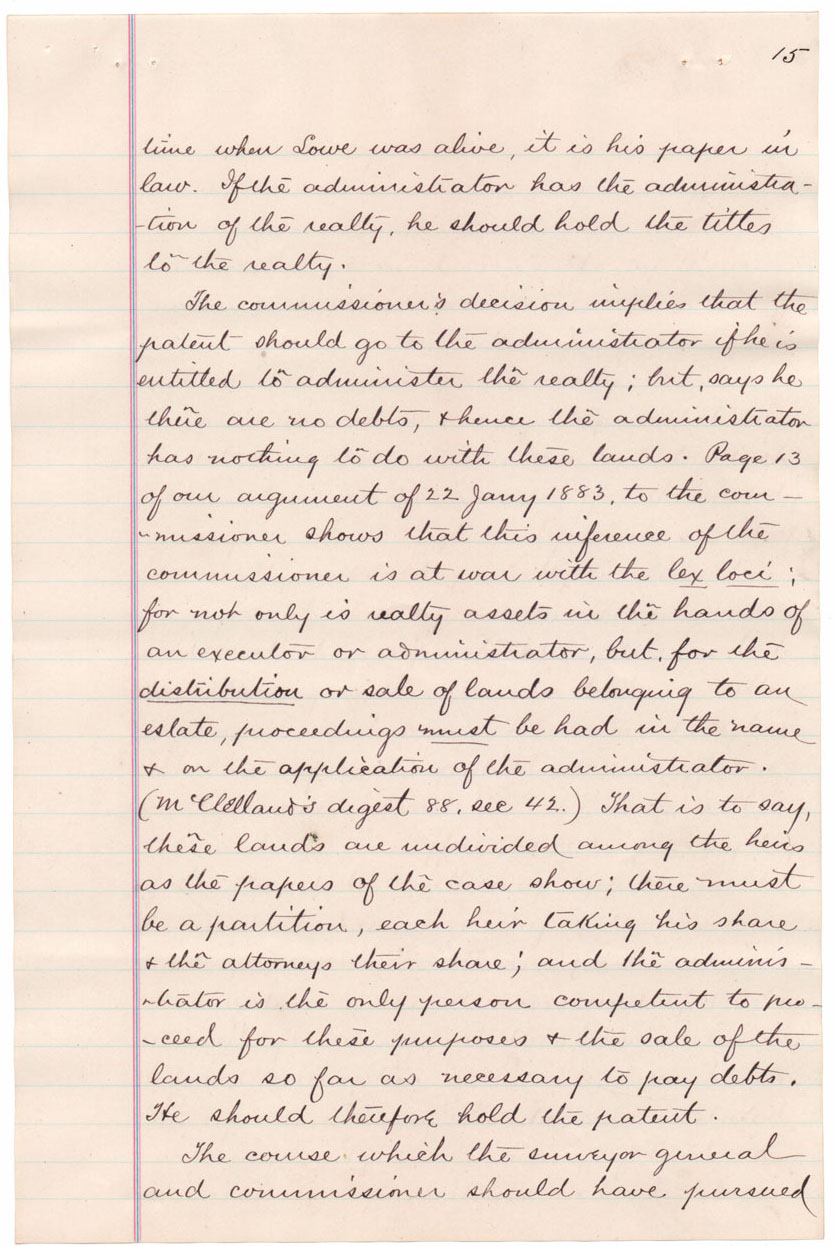 15
time when Lowe was alive, it is his paper in
law. If the administrator has the administra-
-tion of the realty, he should hold the titles
to the realty.
The commissioner's decision implies that the
patent should go to the administrator if he is
entitled to administer the realty; but, says he
there are no debts, & hence the administrator
has nothing to do with these lands. Page 13
of our argument of 22 Jany 1883, to the com-
-missioner shows that this inference of the
commissioner is at war with the lex loci;
for not only is realty assets in the hands of
an executor or administrator, but, for the
distribution or sale of lands belonging to an
estate, proceedings must be had in the name
& on the application of the administrator.
(McClelland's digest 88. sec 42.) That is to say,
these lands are undivided among the heirs
as the papers of the case show; there must
be a partition, each heir taking his share
& the attorneys their share; and the adminis-
-trator is the only person competent to pro-
-ceed for these purposes & the sale of the
lands so far as necessary to pay debts.
He should therefore hold the patent.
The course which the surveyor general
and commissioner should have pursued